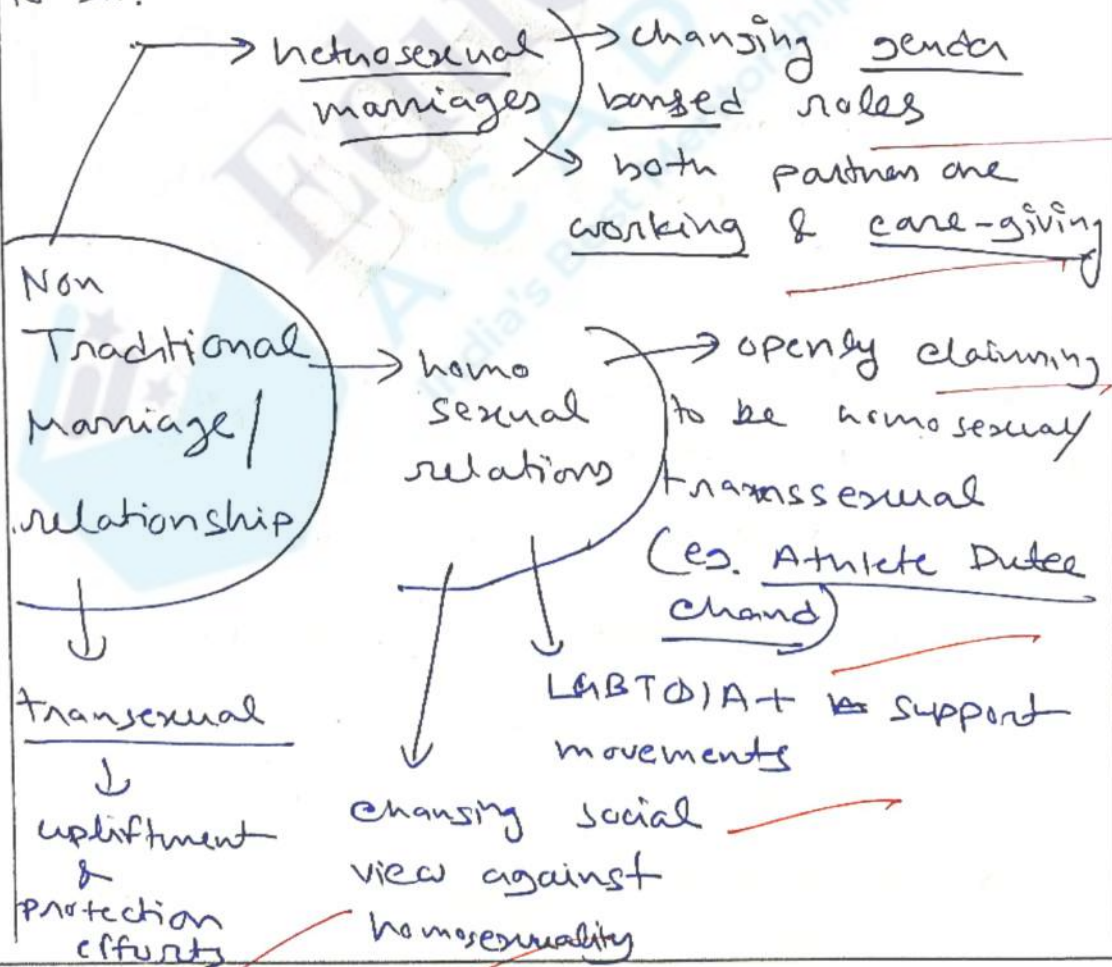 hetrosexual
marriages
changing gender
bansed roles
both partners are
working & care-giving
Non
Traditional
Marriage/
relationship
homo
sexual
relations
openly claiming
to be homosexual/
transsexual
(eg. Athlete Dutee
Chand)
LGBTQIA+ support
movements
changing social
view against
homosexuality
transexual
upliftment
&
protection
efforts